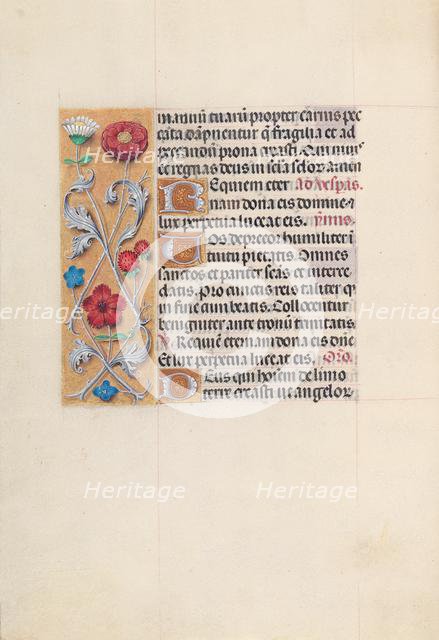 manuū tuarū propter carnis pec
cata dāpnentur q̄ fragilia et ad
peccandū prona creasti. Qui viuis
et regnas deus in scl̄a sclōr amen
Requiem eter Ad vesp̄as.
nam dona eis domine
lux perpetua luceat eis. ymnis
Uos deprecor humiliter i
tuitu pietatis. Omnes
sanctos et pariter se is et interce
datis. Pro cūctis reis taliter
in fine cum beatis. Collocentur
benigniter ante tronū trinitatis
Requiē eternam dona eis dn̄e
Et lux perpetua luceat eis. Oro.
Deus qui hoīem de limo
terre creasti ut angelor
Heritage
Heritage
Heritage
Heritage
Heritage
Heritage
Heritage